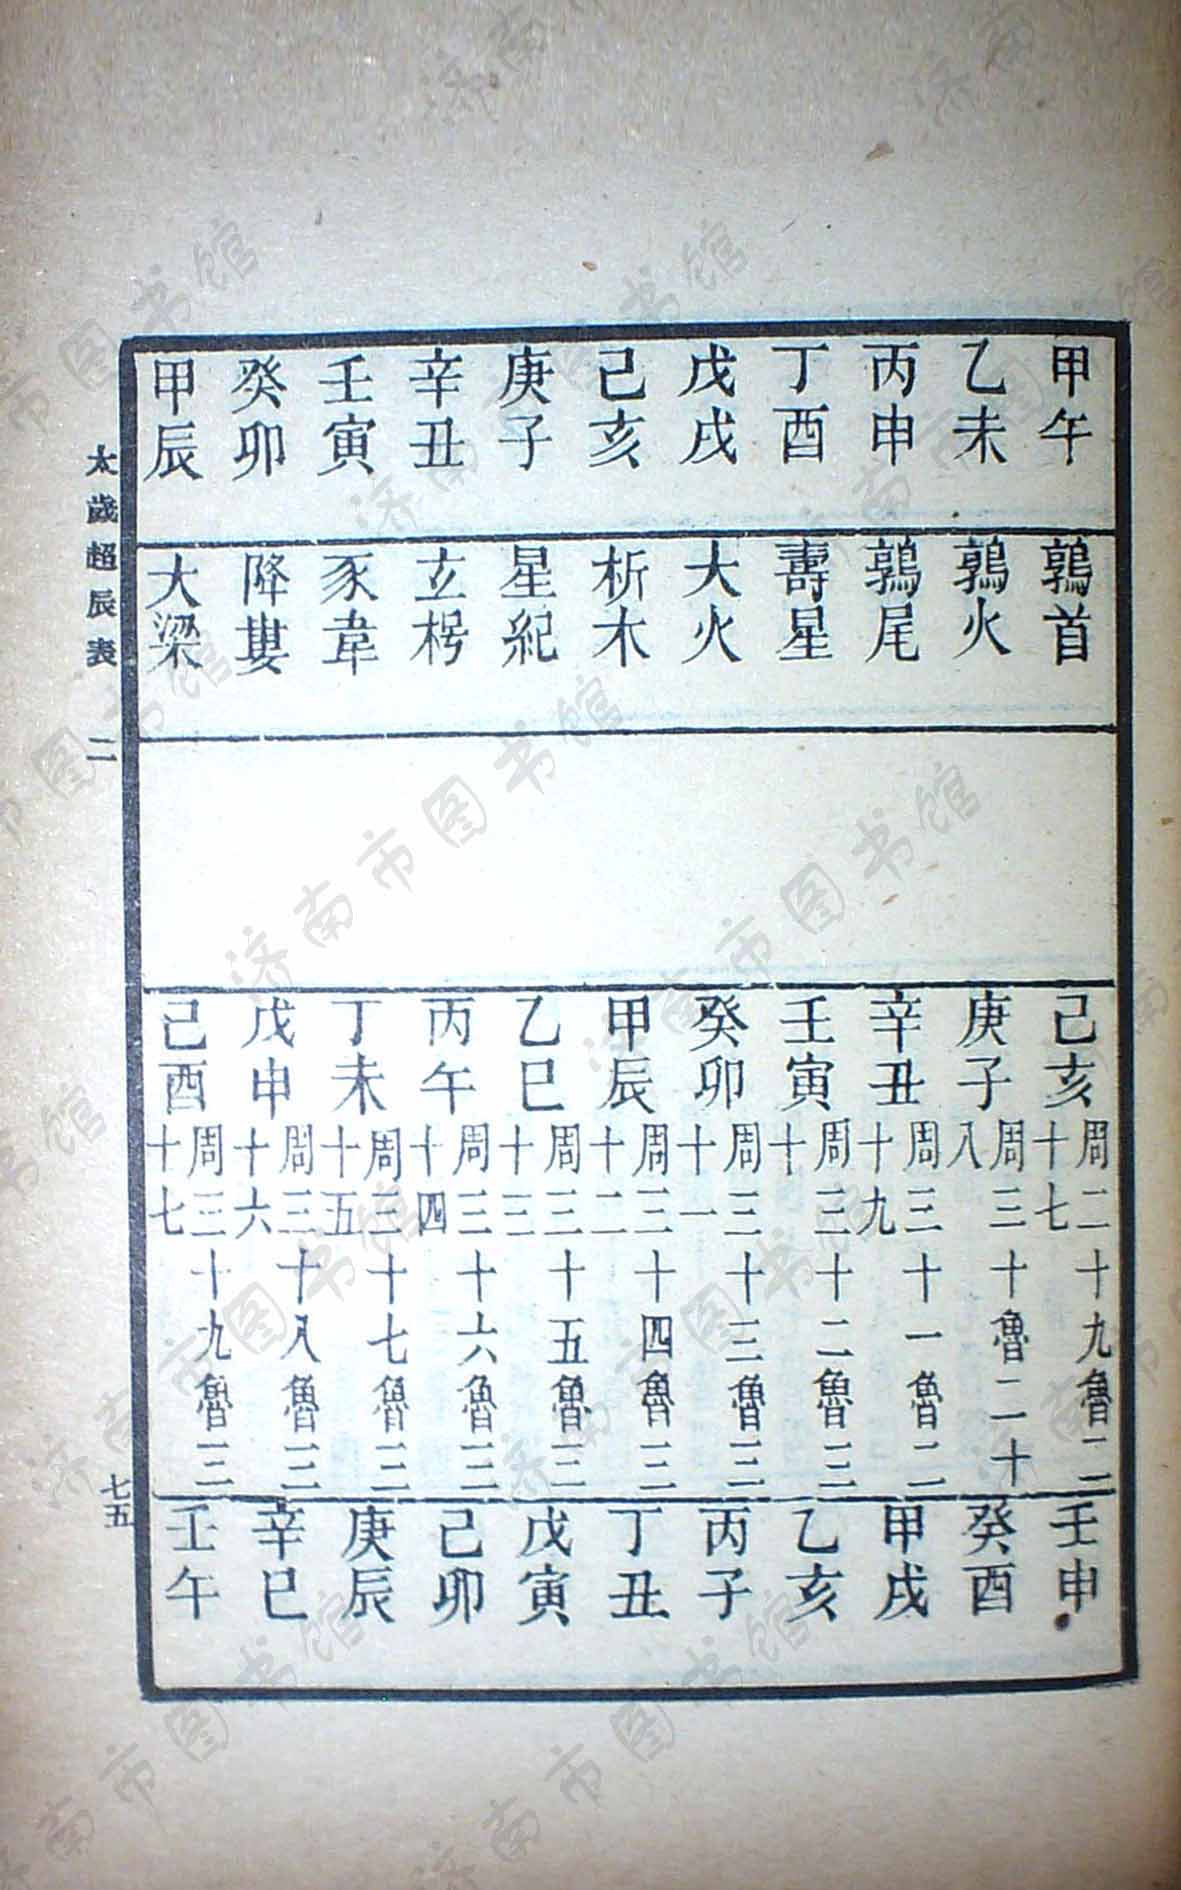 甲午 鶉首 己亥 周二十九魯二十七 壬申
乙未 鶉火 庚子 周三十魯二十八 癸酉
丙申 鶉尾 辛丑 周三十一魯二十九 甲戌
丁酉 壽星 壬寅 周三十二魯三十 乙亥
戊戌 大火 癸卯 周三十三魯三十一 丙子
己亥 析木 甲辰 周三十四魯三十二 丁丑
庚子 星紀 乙巳 周三十五魯三十三 戊寅
辛丑 玄枵 丙午 周三十六魯三十四 己卯
壬寅 豕韋 丁未 周三十七魯三十五 庚辰
癸卯 降婁 戊申 周三十八魯三十六 辛巳
甲辰 大梁 己酉 周三十九魯三十七 壬午
太歲超辰表 二 七五
济南市图书馆